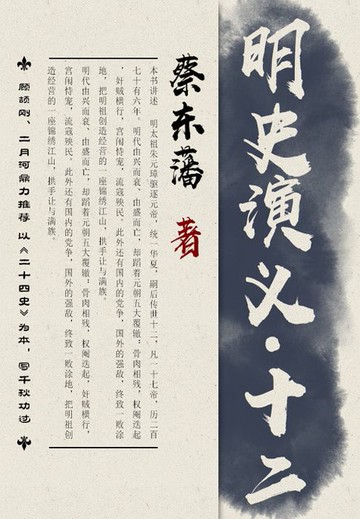 明史演义·十二
蔡东藩 著
本书讲述 明太祖朱元璋驱逐元帝，统一华夏，嗣后传世十二，凡一十七帝，历二百
七十有六年。明代由兴而衰、由盛而亡，却蹈着元朝五大覆辙：骨肉相残，权阉迭起
，奸贼横行，宫闱恃宠，流寇殃民。此外还有国内的党争，国外的强敌，终致一败涂
地，把明祖创造经营的一座锦绣江山，拱手让与满族。
明代由兴而衰、由盛而亡，却蹈着元朝五大覆辙：骨肉相残，权阉迭起，奸贼横行，
宫闱恃宠，流寇殃民。此外还有国内的党争，国外的强敌，终致一败涂地，把明祖创
造经营的一座锦绣江山，拱手让与满族。
顾颉刚、二月河鼎力推荐 以《二十四史》为本，写千秋功过